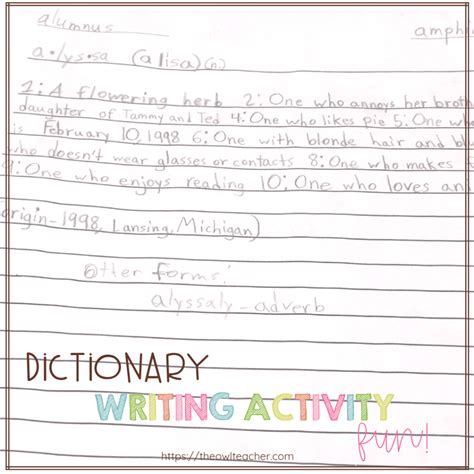 alumnus amphi
a•lys•sa (alisa) (n.)
1: A flowering herb 2: One who annoys her broth
daughter of Tammy and Ted 4: One who likes pie 5: One who
is February 10, 1998 6: One with blonde hair and blu
who doesn't wear glasses or contacts 8: One who makes
9: One who enjoys reading 10: One who loves and
origin-1998, Lansing, Michigan)
Other forms:
alyssaly - adverb
DICTIONARY
WRITING ACTIVITY
fun!
https://theowlteacher.com